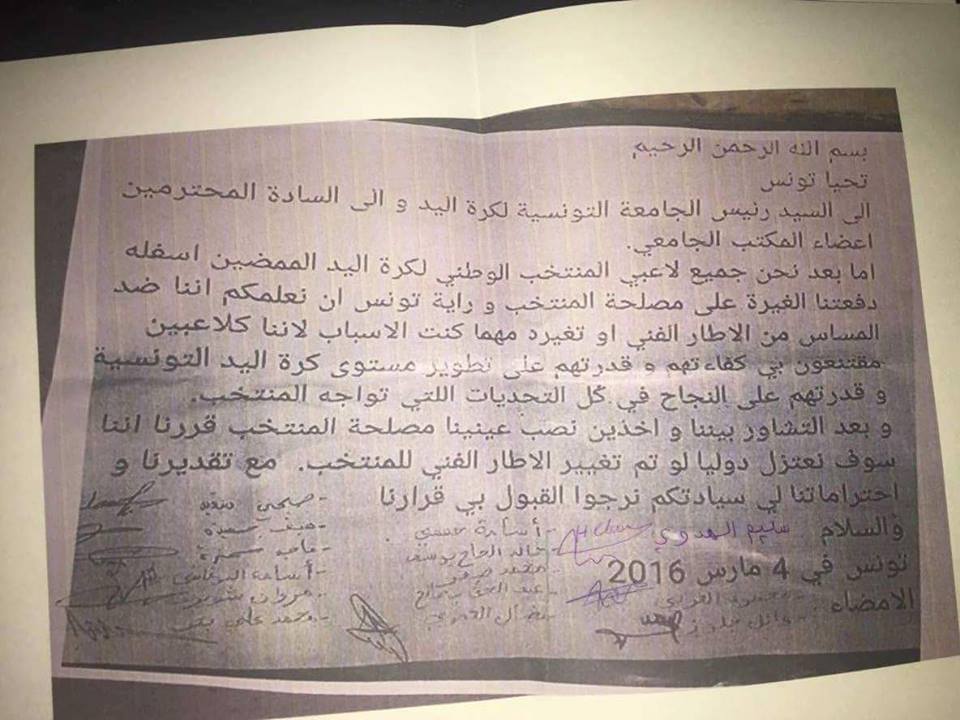 بسم الله الرحمن الرحيم
تحيا تونس
الى السيد رئيس الجامعة التونسية لكرة اليد و الى السادة المحترمين
اعضاء المكتب الجامعي.
اما بعد نحن جميع لاعبي المنتخب الوطني لكرة اليد الممضين اسفله
دفعتنا الغيرة على مصلحة المنتخب و راية تونس ان نعلمكم اننا ضد
المساس من الاطار الفني او تغيره مهما كنت الاسباب لاننا كلاعبين
مقتنعون بي كفاءتهم و قدرتهم على تطوير مستوى كرة اليد التونسية
و قدرتهم على النجاح في كل التحديات اللتي تواجه المنتخب.
و بعد التشاور بيننا و اخذين نصب عينينا مصلحة المنتخب قررنا اننا
سوف نعتزل دوليا لو تم تغيير الاطار الفني للمنتخب. مع تقديرنا و
احتراماتنا لي سيادتكم نرجوا القبول بي قرارنا
والسلام
تونس في 4 مارس 2016
الامضاء
سليم الهدوي
- أسامة حسني
- خالد الحاج يوسف
- محمد
- عبد الحق
- نضال
- محمود الغربي
- وائل جلوز
- صبحي
- أسامة
- مروان شويرف
- محمد علي